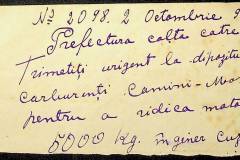 No 2098. 2 Octombrie 9
Prefectura colta catre
Trimeteți urgent la dipozitu
carburanți Camini-Mo
pentru a ridica mota
5000 Kg. înginer cu